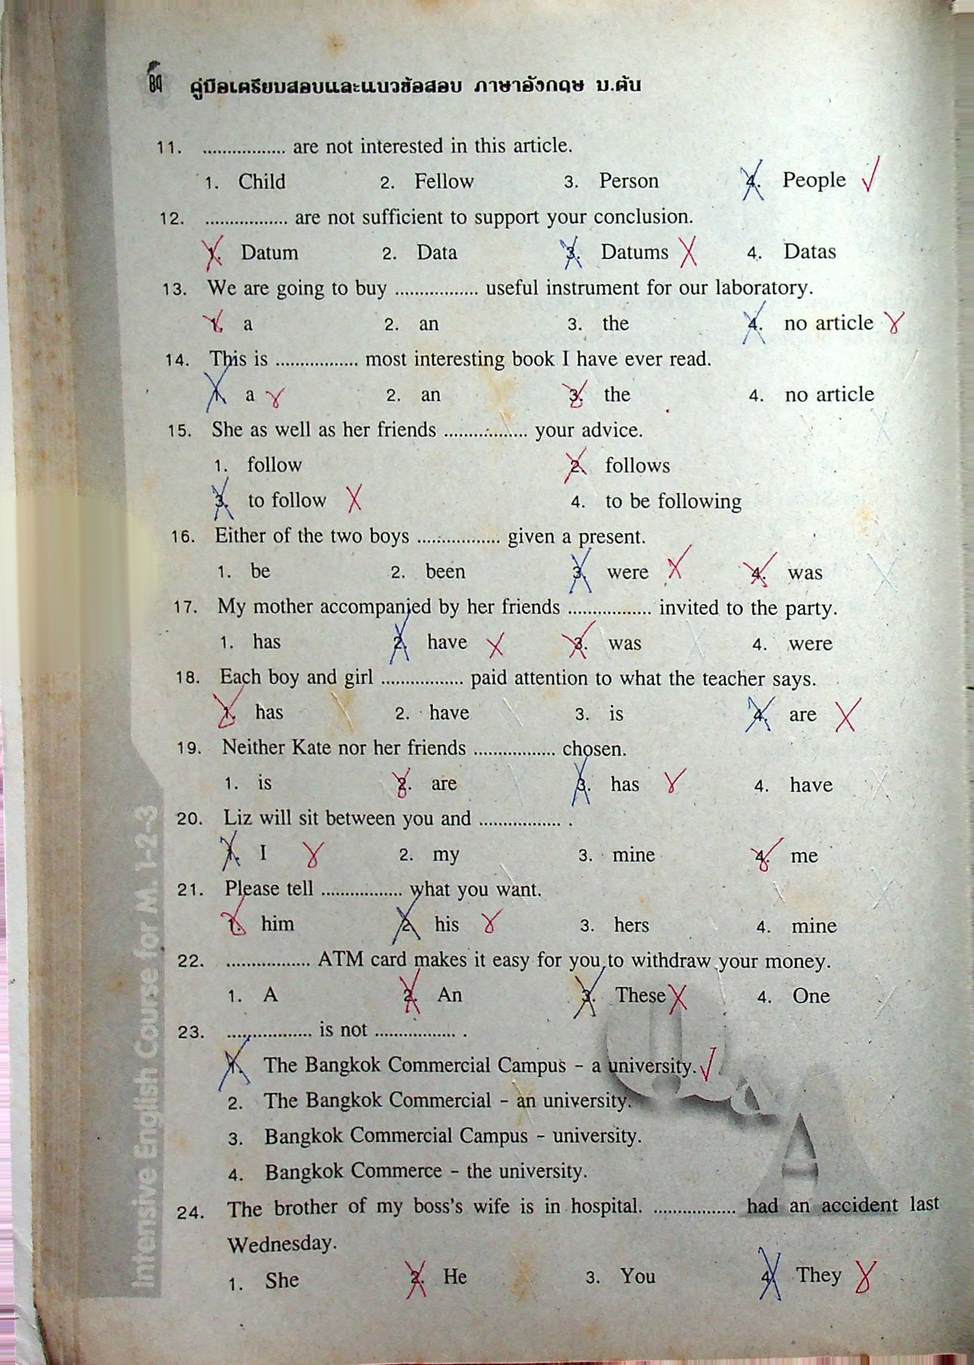 84 คู่มือเตรียมสอบและแนวข้อสอบ ภาษาอังกฤษ ม.ต้น
11. ................ are not interested in this article.
1. Child 2. Fellow 3. Person 4. People
12. ................ are not sufficient to support your conclusion.
1. Datum 2. Data 3. Datums 4. Datas
13. We are going to buy ................ useful instrument for our laboratory.
1. a 2. an 3. the 4. no article
14. This is ................ most interesting book I have ever read.
1. a 2. an 3. the 4. no article
15. She as well as her friends ................ your advice.
1. follow 2. follows
3. to follow 4. to be following
16. Either of the two boys ................ given a present.
1. be 2. been 3. were 4. was
17. My mother accompanied by her friends ................ invited to the party.
1. has 2. have 3. was 4. were
18. Each boy and girl ................ paid attention to what the teacher says.
1. has 2. have 3. is 4. are
19. Neither Kate nor her friends ................ chosen.
1. is 2. are 3. has 4. have
20. Liz will sit between you and ................ .
1. I 2. my 3. mine 4. me
21. Please tell ................ what you want.
1. him 2. his 3. hers 4. mine
22. ................ ATM card makes it easy for you to withdraw your money.
1. A 2. An 3. These 4. One
23. ................ is not ................ .
1. The Bangkok Commercial Campus - a university.
2. The Bangkok Commercial - an university.
3. Bangkok Commercial Campus - university.
4. Bangkok Commerce - the university.
24. The brother of my boss's wife is in hospital. ................ had an accident last
Wednesday.
1. She 2. He 3. You 4. They
Intensive English Course for M. 1-2-3